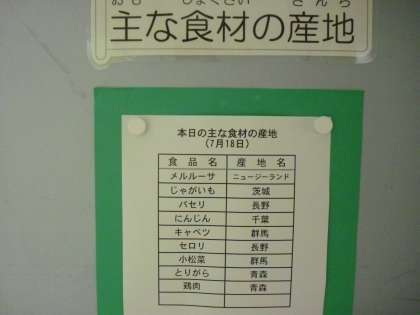 おも しょくざい さんち
主な食材の産地
本日の主な食材の産地
(7月18日)
食品名 産地名
メルルーサ ニュージーランド
じゃがいも 茨城
パセリ 長野
にんじん 千葉
キャベツ 群馬
セロリ 長野
小松菜 群馬
とりがら 青森
鶏肉 青森